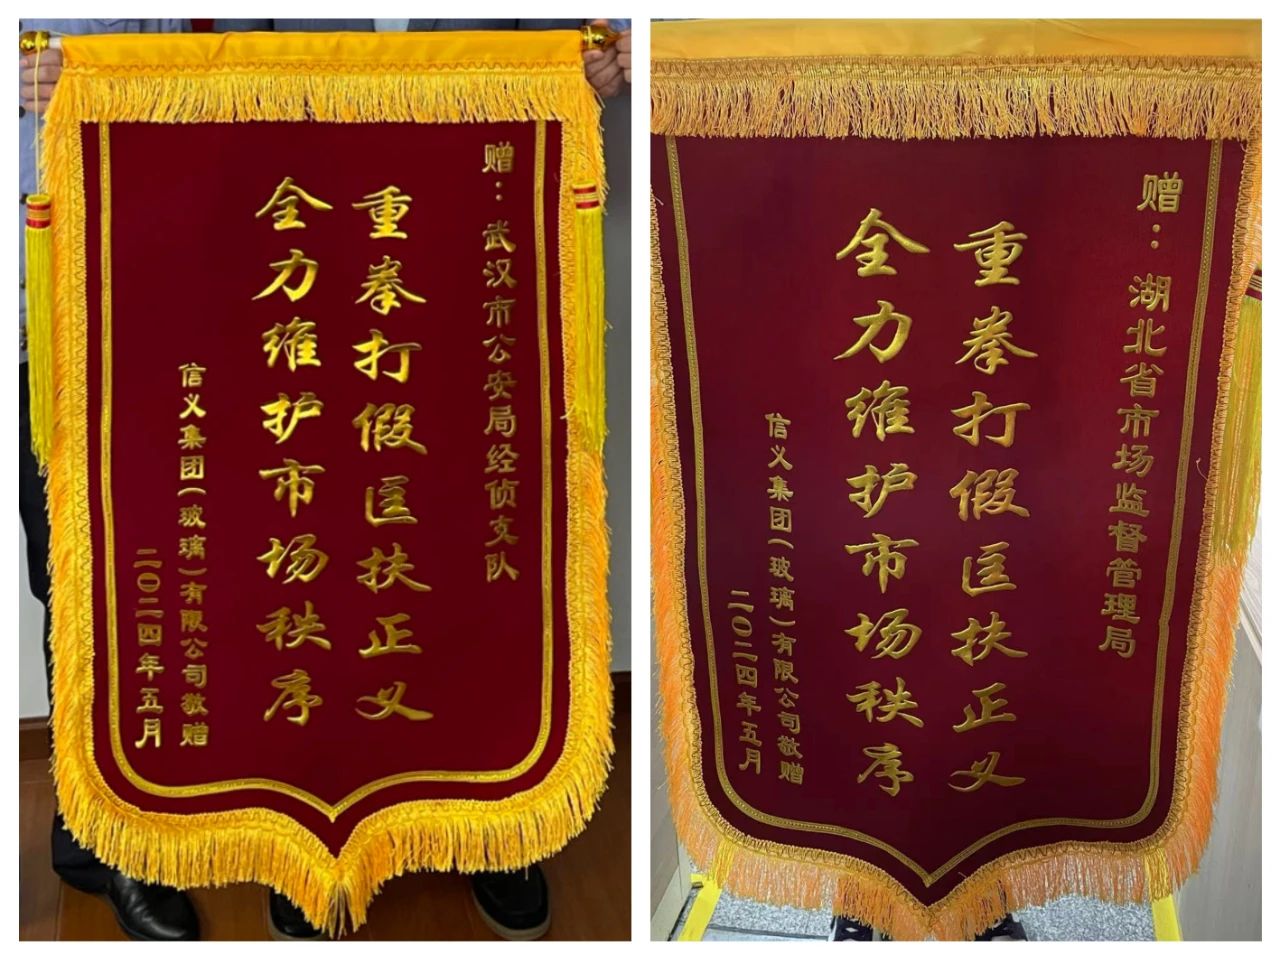 赠：武汉市公安局经侦支队
重拳打假匡扶正义
全力维护市场秩序
信义集团(玻璃)有限公司敬赠
二〇二四年五月
赠：湖北省市场监督管理局
重拳打假匡扶正义
全力维护市场秩序
信义集团(玻璃)有限公司敬赠
二〇二四年五月